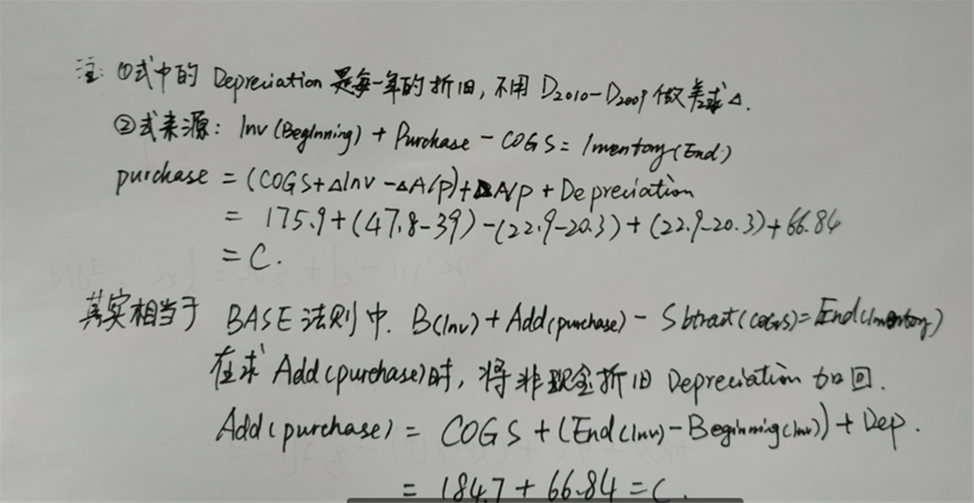 注: ①式中的 Depreciation 是每一年的折旧, 不用 D2010-D2009 做差求Δ.
②式来源: Inv(Beginning) + Purchase - COGS = Inventory(End)
purchase = (COGS+ΔInv-ΔA/p)+ΔA/p + Depreciation
= 175.9+(47.8-39)-(22.9-20.3)+(22.9-20.3)+66.84
= C.
其实相当于 BASE 法则中. B(Inv) + Add(purchase) - Sbtract(COGS)=End(Inventory)
在求 Add(purchase)时, 将非现金折旧 Depreciation 加回.
Add(purchase) = COGS + (End(Inv)-Beginning(Inv)) + Dep.
= 184.7 + 66.84 = C.